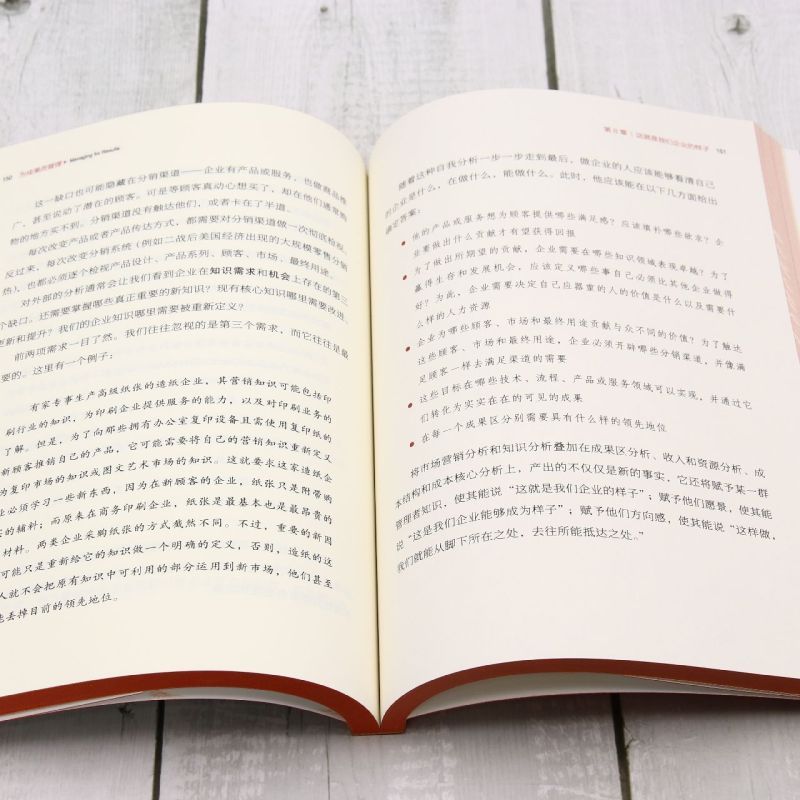 150 为成果而管理 Managing for Results
这一缺口也可能隐藏在分销渠道——企业有产品或服务，也做商品推
广，甚至说动了潜在的顾客。可是等顾客真动心想买了，却在他们通常购
物的地方买不到。分销渠道没有触达他们，或者卡在了半道。
每次改变产品或者产品传达方式，都需要对分销渠道做一次彻底检视。
反过来，每次改变分销系统（例如二战后美国经济出现的大规模零售分销
热），也都必须逐个检视产品设计、产品系列、顾客、市场、最终用途。
对外部的分析通常会让我们看到企业在知识需求和机会上存在的第三
个缺口。还需要掌握哪些真正重要的新知识？现有核心知识哪里需要改进、
更新和提升？我们的企业知识哪里需要被重新定义？
前两项需求一目了然。我们往往忽视的是第三个需求，而它往往是最
要的。这里有一个例子：
有家专事生产高级纸张的造纸企业，其营销知识可能包括印
刷行业的知识，为印刷企业提供服务的能力，以及对印刷业务的
了解。但是，为了向那些拥有办公室复印设备且需使用复印纸的
新顾客推销自己的产品，它可能需要将自己的营销知识重新定义
为复印市场的知识或图文艺术市场的知识。这就要求这家造纸企
业必须学习一些新东西，因为在新顾客的企业，纸张只是附带购
的辅料；而原来在商务印刷企业，纸张是最基本也是最昂贵的
材料。两类企业采购纸张的方式截然不同。不过，重要的新因
可能只是重新给它的知识做一个明确的定义，否则，造纸的这
人就不会把原有知识中可利用的部分运用到新市场，他们甚至
能丢掉目前的领先地位。
第8章 这就是我们企业的样子 151
随着这种自我分析一步一步走到最后，做企业的人应该能够看清自己
的企业是什么，在做什么，能做什么。此时，他应该能在以下几方面给出
确定答案：
● 他的产品或服务想为顾客提供哪些满足感？应该填补哪些欲求？企
业要做出什么贡献才有望获得回报
● 为了做出所期望的贡献，企业需要在哪些知识领域表现卓越？为了
赢得生存和发展机会，应该定义哪些事自己必须比其他企业做得
好？为此，企业需要决定自己应器重的人的价值是什么以及需要什
么样的人力资源
● 企业为哪些顾客、市场和最终用途贡献与众不同的价值？为了触达
这些顾客、市场和最终用途，企业必须开辟哪些分销渠道，并像满
足顾客一样去满足渠道的需要
● 这些目标在哪些技术、流程、产品或服务领域可以实现，并通过它
们转化为实实在在的可见的成果
● 在每一个成果区分别需要具有什么样的领先地位
将市场营销分析和知识分析叠加在成果区分析、收入和资源分析、成
本结构和成本核心分析上，产出的不仅仅是新的事实，它还将赋予某一群
管理者知识，使其能说“这就是我们企业的样子”；赋予他们愿景，使其能
说“这是我们企业能够成为样子”；赋予他们方向感，使其能说“这样做，
我们就能从脚下所在之处，去往所能抵达之处。”